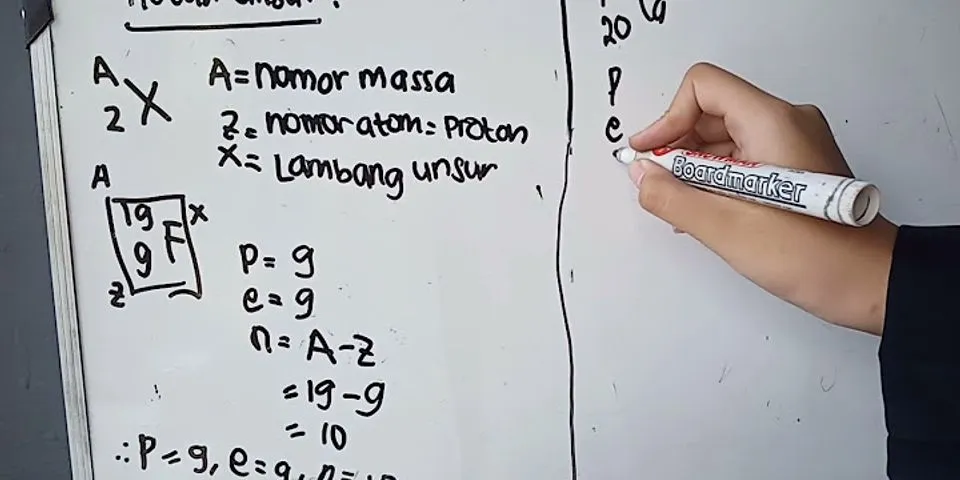 A
Z X
A = nomor massa
Z = nomor atom = proton
X = Lambang unsur
A
19 X
9 F
Z
p = 9
e = 9
n = A - Z
= 19 - 9
= 10
∴ p = 9, e = 9, n = 10
20
p
e
Boardmarker